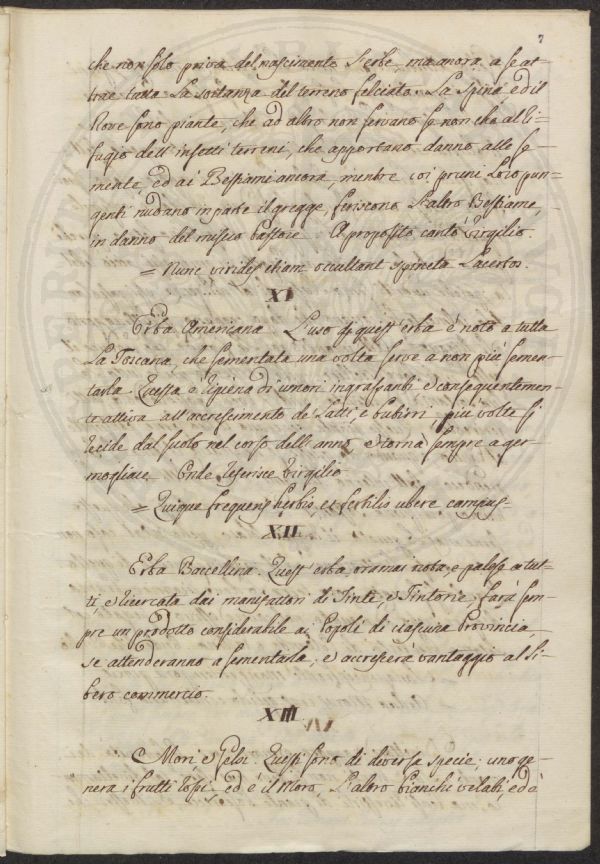 7
che non solo priva del nascimento l'erbe, ma ancora a se at=
trae tutta la sostanza del terreno felciato. La Spina, ed il
Rove sono piante, che ad altro non servano se non che al li=
fugio dell'insetti terreni, che apportano danno alle se=
mente, ed ai Bestiami ancora, mentre coi pruni loro pun=
genti nudano in parte il gregge, feriscono l'altro Bestiame,
in danno del misero Pastore. A proposito cantò Virgilio.
= Nunc virides etiam occultant spineta Lacertos.
XI
Erba Americana. L'uso di quest'erba è noto a tutta
la Toscana, che sementata una volta serve a non più semen=
tarla. Questa è ripiena di umori ingrassanti e conseguentemen=
te attiva all'accrescimento de Latti, e butirri, più volte si
recide dal suolo nel corso dell'anno e torna sempre a ger=
mogliare. Onde riferisce Virgilio
= Quique frequens herbis, et fertilis ubere campus=
XII
Erba Baccellina. Quest'erba, oramai nota, e palese a tut=
ti, e ricercata dai manifattori di Tinte, e Tintorie, farà sem=
pre un prodotto considerabile ai Popoli di ciascuna Provincia,
se attenderanno a sementarla, e accrescerà vantaggio al li=
bero commercio.
XIII
Mori e Gelsi. Questi sono di diverse specie: uno ge=
nera i frutti rossi, ed è il Moro, l'altro bianchi velati, ed è